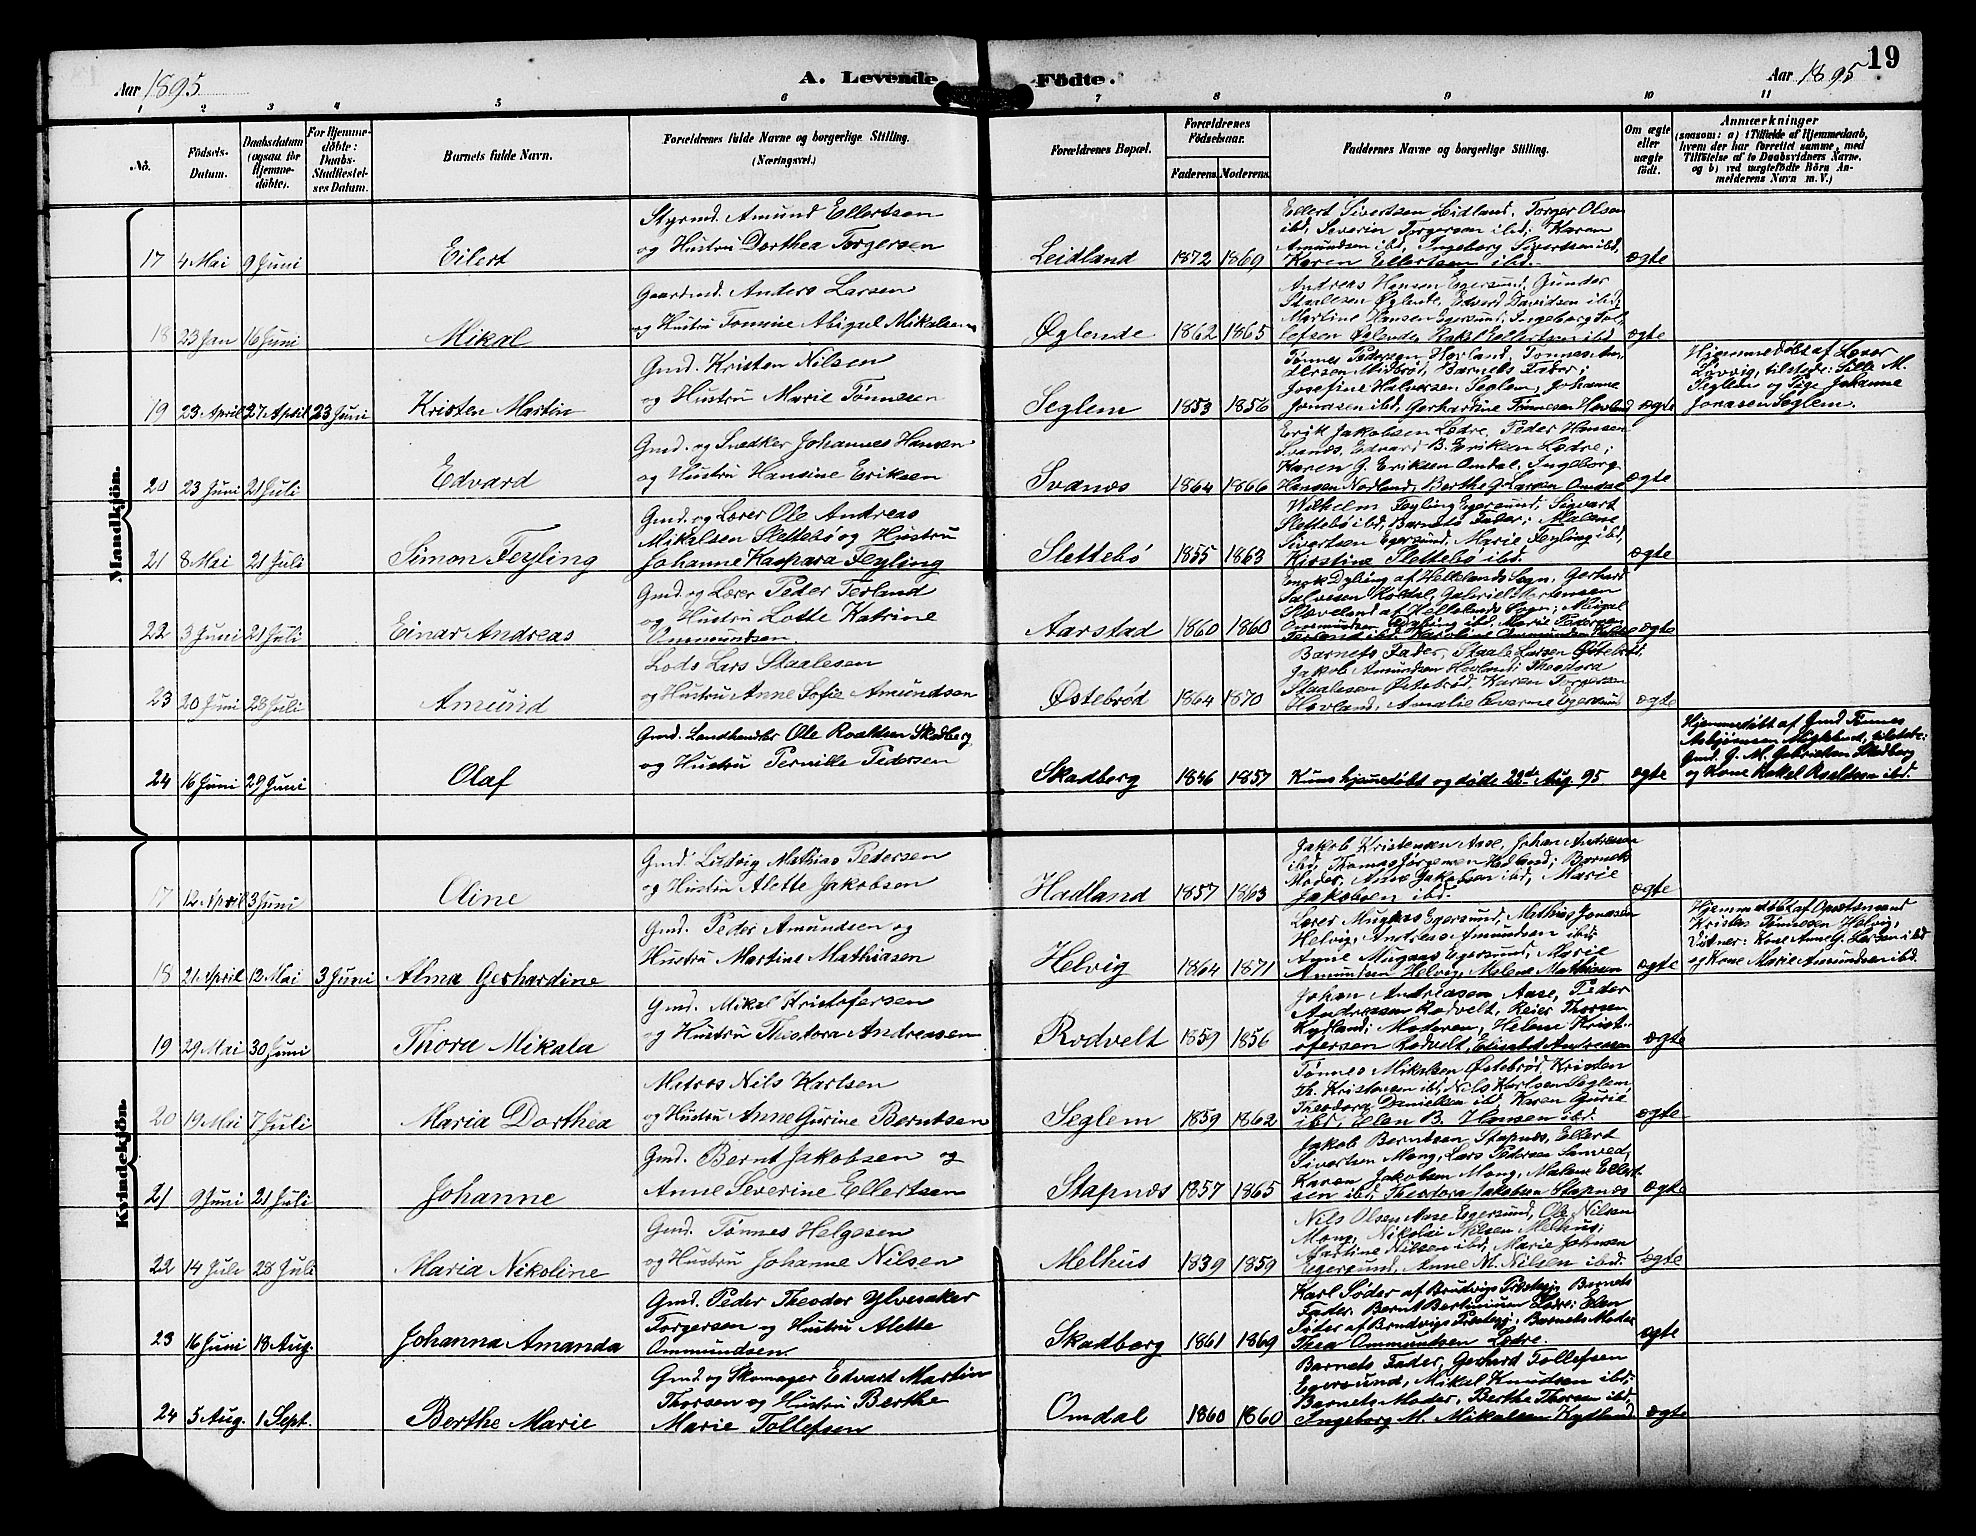 Aar 1895
A. Levende Födte.
Aar 1895
19
1 2 3 4 5 6 7 8 9 10 11
No.
Födsels-Datum.
Daabsdatum (ogsaa for Hjemmedöbte).
For Hjemmedöbte: Daabs-Stadfæstelses Datum.
Barnets fulde Navn.
Forældrenes fulde Navne og borgerlige Stilling. (Næringsvei.)
Forældrenes Bopæl.
Forældrenes Födselsaar.
Faderens. Moderens.
Faddernes Navne og borgerlige Stilling.
Om ægte eller uægte födt.
Anmærkninger
(saasom: a) i Tilfælde af Hjemmedaab, hvem der har forrettet samme, med Tilföielse af to Daabsvidners Navne, og b) ved uægtefödte Börn Anmelderens Navn m. V.)
Mandkjön.
17 4 Mai 9 Juni Eilert
Styrmd. Amund Ellertsen
og Hustru Dorthea Torgersen
Leidland 1872 1869
Ellert Sivertsen Leidland, Torger Olsen
ibd, Severin Torgersen ibd; Karen
Amundsen ibd, Ingeborg Sivertsen ibd,
Karen Ellertsen ibd.
ægte
18 23 Jan 16 Juni Mikal
Gaardmd. Anders Larsen
og Hustru Tomine Abigal Mikalsen
Øglende 1862 1865
Andreas Hansen Egersund, Gunder
Staalesen Øglende, Edvard Davidsen ibd;
Martine Hansen Egersund, Ingeborg Tol-
lefsen Øglende, Rakel Ellertsen ibd.
ægte
19 23 April 27 April 23 Juni Kristen Martin
Gmd. Kristen Nilsen
og Hustru Marie Tønnesen
Seglem 1853 1856
Tønnes Pedersen Hovland, Tønnes An-
dersen Midbrød, Barnets Fader;
Josefine Halvorsen Seglem, Johanne
Jonasen ibd, Gerhardine Tønnesen Hovland
ægte
Hjemmedøbt af Lærer
Løvvig, tilstede: Sille M.
Seglem og Pige Johanne
Jonasen Seglem.
20 23 Juni 21 Juli Edvard
Gmd. og Snedker Johannes Hansen
og Hustru Hansine Eriksen
Svanes 1864 1866
Erik Jakobsen Lædre, Peder Hansen
Svanes, Edvard B. Eriksen Lædre;
Karen G. Eriksen Omdal, Ingeborg
Hansen Nodland, Berthe G. Larsen Omdal
ægte
21 8 Mai 21 Juli Simon Feyling
Gmd. og Lærer Ole Andreas
Mikalsen Slettebø og Hustru
Johanne Kaspara Feyling
Slettebø 1855 1863
Wilhelm Feyling Egersund, Sigvart
Slettebø ibd, Barnets Fader; Malene
Sivertsen Egersund, Marie Feyling ibd,
Kirstine Slettebø ibd.
ægte
22 3 Juni 21 Juli Einar Andreas
Gmd. og Lærer Peder Terland
og Hustru Lotte Katrine
Ommundsen
Aarstad 1860 1860
af Hellelands Sogn, Gerhard
Salvesen Koldal, Gabriel Mortensen
Skeveland af Hellelands Sogn; Abigal
Ommundsen ibd, Marie Pedersen
Terland ibd, Karoline Ommundsen
ægte
23 20 Juni 28 Juli Amund
Lods Lars Staalesen
og Hustru Anne Sofie Amundsen
Østebrød 1864 1870
Barnets Fader, Staale Larsen Østebrød,
Jakob Amundsen Hovland; Theodora
Staalesen Østebrød, Karen Torgersen
Hovland, Amalie Egersund
ægte
24 16 Juni 29 Juni Olaf
Gmd. Landhandler Ole Roaldsen Skadberg
og Hustru Pernille Pedersen
Skadberg 1846 1857
Kuns hjemmedøbt og døde 22de Aug. 95.
ægte
Hjemmedøbt af Gmd Tønnes
Asbjørnsen Myklebust, tilstede:
Gmd. G. M. Gabrielsen Skadberg
og Kone Rakel Roaldsen ibd.
Kvindekjön.
17 12 April 3 Juni Oline
Gmd. Ludvig Mathias Pedersen
og Hustru Alette Jakobsen
Hadland 1857 1863
Jakob Kristensen Aase, Johan Andreasen
ibd, Thomas Jørgensen Hadland; Barnets
Moder, Anne Jakobsen ibd, Marie
Jakobsen ibd.
ægte
18 21 April 12 Mai 3 Juni Alma Gerhardine
Gmd. Peder Amundsen og
Hustru Martine Mathiasen
Helvig 1864 1871
Lærer Mugaas Egersund, Mathias Jonasen
Helvig, Andreas Amundsen ibd;
Anne Mugaas Egersund, Marie
Amundsen Helvig, Melene Mathiasen
ægte
Hjemmedøbt af Opsætsmand
Kristen Tønnesen Helvig,
Vitner: Kone Anne G. Larsen ibd
og Kone Marie Amundsen ibd.
19 29 Mai 30 Juni Thora Mikala
Gmd. Mikal Kristofersen
og Hustru Theodora Andreasen
Rodvelt 1859 1856
Johan Andreasen Aase, Peder
Andreasen Rodvelt, Reier Thorsen
Kydland; Moderen, Helene Krist-
ofersen Rodvelt, Elisabet Andreasen
ægte
20 19 Mai 7 Juli Maria Dorthea
Matros Nils Karlsen
og Hustru Anne Gurine Berntsen
Seglem 1859 1862
Tønnes Mikalsen Østebrød, Kristen
Th. Kristensen ibd, Nils Karlsen Seglem,
Theodora Danielsen ibd, Karen Gurie
ibd, Elen B. Hansen ibd.
ægte
21 9 Juni 21 Juli Johanne
Gmd. Bernt Jakobsen og
Anne Severine Ellertsen
Stapnæs 1857 1865
Jakob Berntsen Stapnæs, Ellert
Sivertsen Mong, Lars Pedersen Sanved,
Karen Jakobsen Mong, Malene Ellert-
sen ibd, Theodora Jakobsen Stapnæs
ægte
22 14 Juli 28 Juli Maria Nikoline
Gmd. Tønnes Helgesen
og Hustru Johanne Nilsen
Melhus 1839 1859
Nils Olsen Aase Egersund, Ole Nilsen
Mong, Nikolai Nilsen Melhus;
Martine Nilsen ibd, Marie Johnsen
Egersund, Anne M. Nilsen ibd.
ægte
23 16 Juni 18 Aug. Johanna Amanda
Gmd. Peder Theodor Ylvesaker
Torgersen og Hustru Alette
Ommundsen.
Skadberg 1861 1869
Karl Søder af Brudvigs Prestegj, Barnets
Fader, Bernt Bertinius Lædre; Elen
Søder af Brudvigs Prestegj, Barnets Moder
Thea Ommundsen Lædre.
ægte
24 5 Aug. 1 Sept. Berthe Marie
Gmd og Skomager Edvart Martin
Thorsen og Hustru Berthe
Marie Tollefsen
Omdal 1860 1860
Barnets Fader, Gerhard Tollefsen
Egersund, Mikal Knudsen ibd;
Barnets Moder, Berthe Thorsen ibd,
Ingeborg M. Mikalsen Kydland
ægte